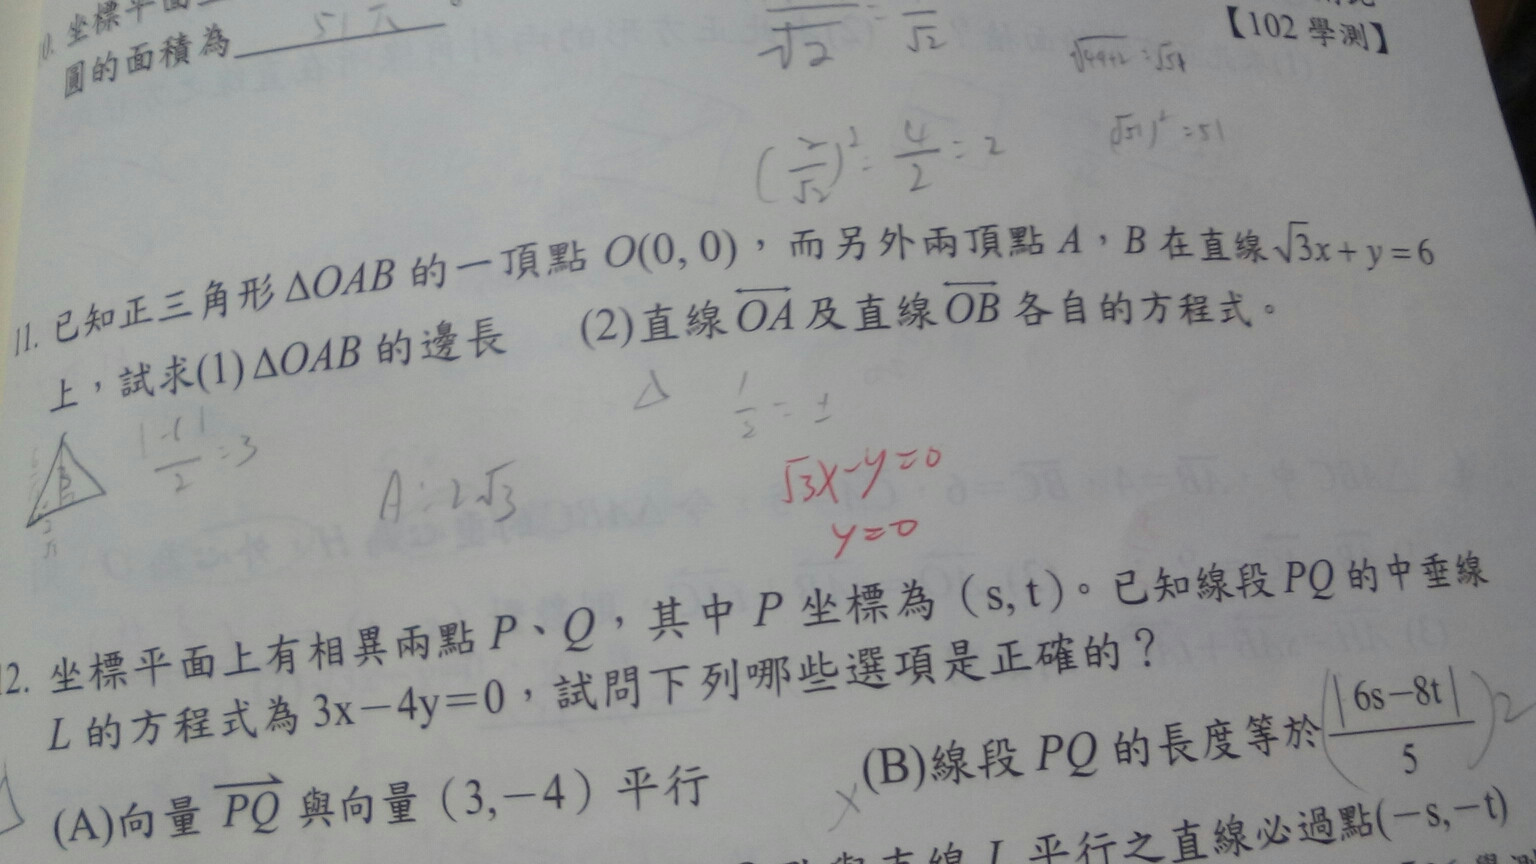 10. 坐標平面
圓的面積為 51π 。
√2 = √2
√49+2 = √51
【102 學測】
(2/√2)² = 4/2 = 2
(√51)² = 51
11. 已知正三角形 ΔOAB 的一頂點 O(0, 0)，而另外兩頂點 A，B 在直線 √3x + y = 6
上，試求(1) ΔOAB 的邊長 (2)直線 OA 及直線 OB 各自的方程式。
/2 = 3
A: 2√3
√3x-y=0
y=0
12. 坐標平面上有相異兩點 P、Q，其中 P 坐標為（s, t）。已知線段 PQ 的中垂線
L 的方程式為 3x－4y＝0，試問下列哪些選項是正確的？
(A)向量 PQ 與向量（3,－4）平行
(B)線段 PQ 的長度等於 (|6s－8t|/5) 2
與直線 L 平行之直線必過點(－s,－t)